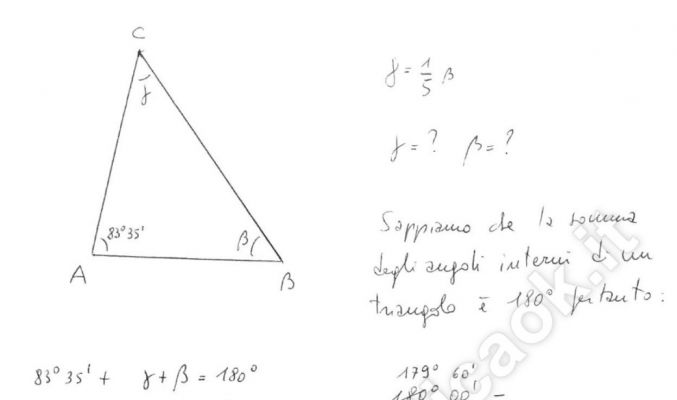 C
γ
γ = 1/5 β
γ = ? β = ?
83° 35'
β
A
B
Sappiamo che la somma
degli angoli interni di un
triangolo è 180° pertanto:
83° 35' + γ + β = 180°
179° 60'
180° 00' -
icaok.it